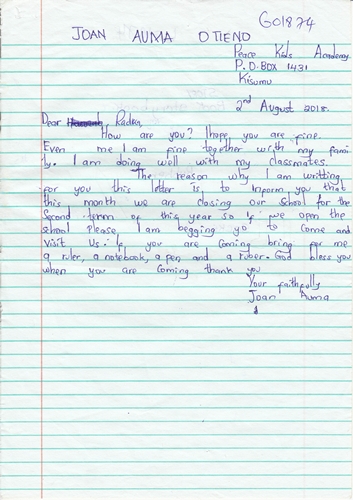 G01874
JOAN AUMA OTIENO
Peace Kids Academy
P.O.BOX 1431
Kisumu
2nd August 2018.
Dear Radka,
How are you? I hope you are fine.
Even me I am fine together with my fami
ly. I am doing well with my classmates.
The reason why I am writting
for you this letter is to inform you that
this month we are closing our school for the
Second term of this year so if we open the
school please I am begging yo to come and
visit us. If you are coming bring for me
a ruler, a notebook, a pen, and a ruber. God bless you
when you are coming thank you
Your faithfully
Joan Auma